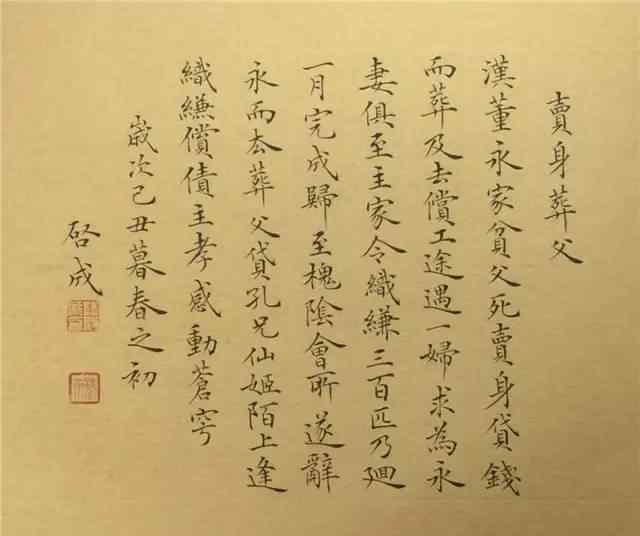 賣身葬父
漢董永家貧父死賣身貸錢
而葬及去償工途遇一婦求為永
妻俱至主家令織縑三百匹乃廻
一月完成歸至槐陰會所遂辭
永而去葬父貸孔兄仙姬陌上逢
織縑償債主孝感動蒼穹
歲次己丑暮春之初
啓成